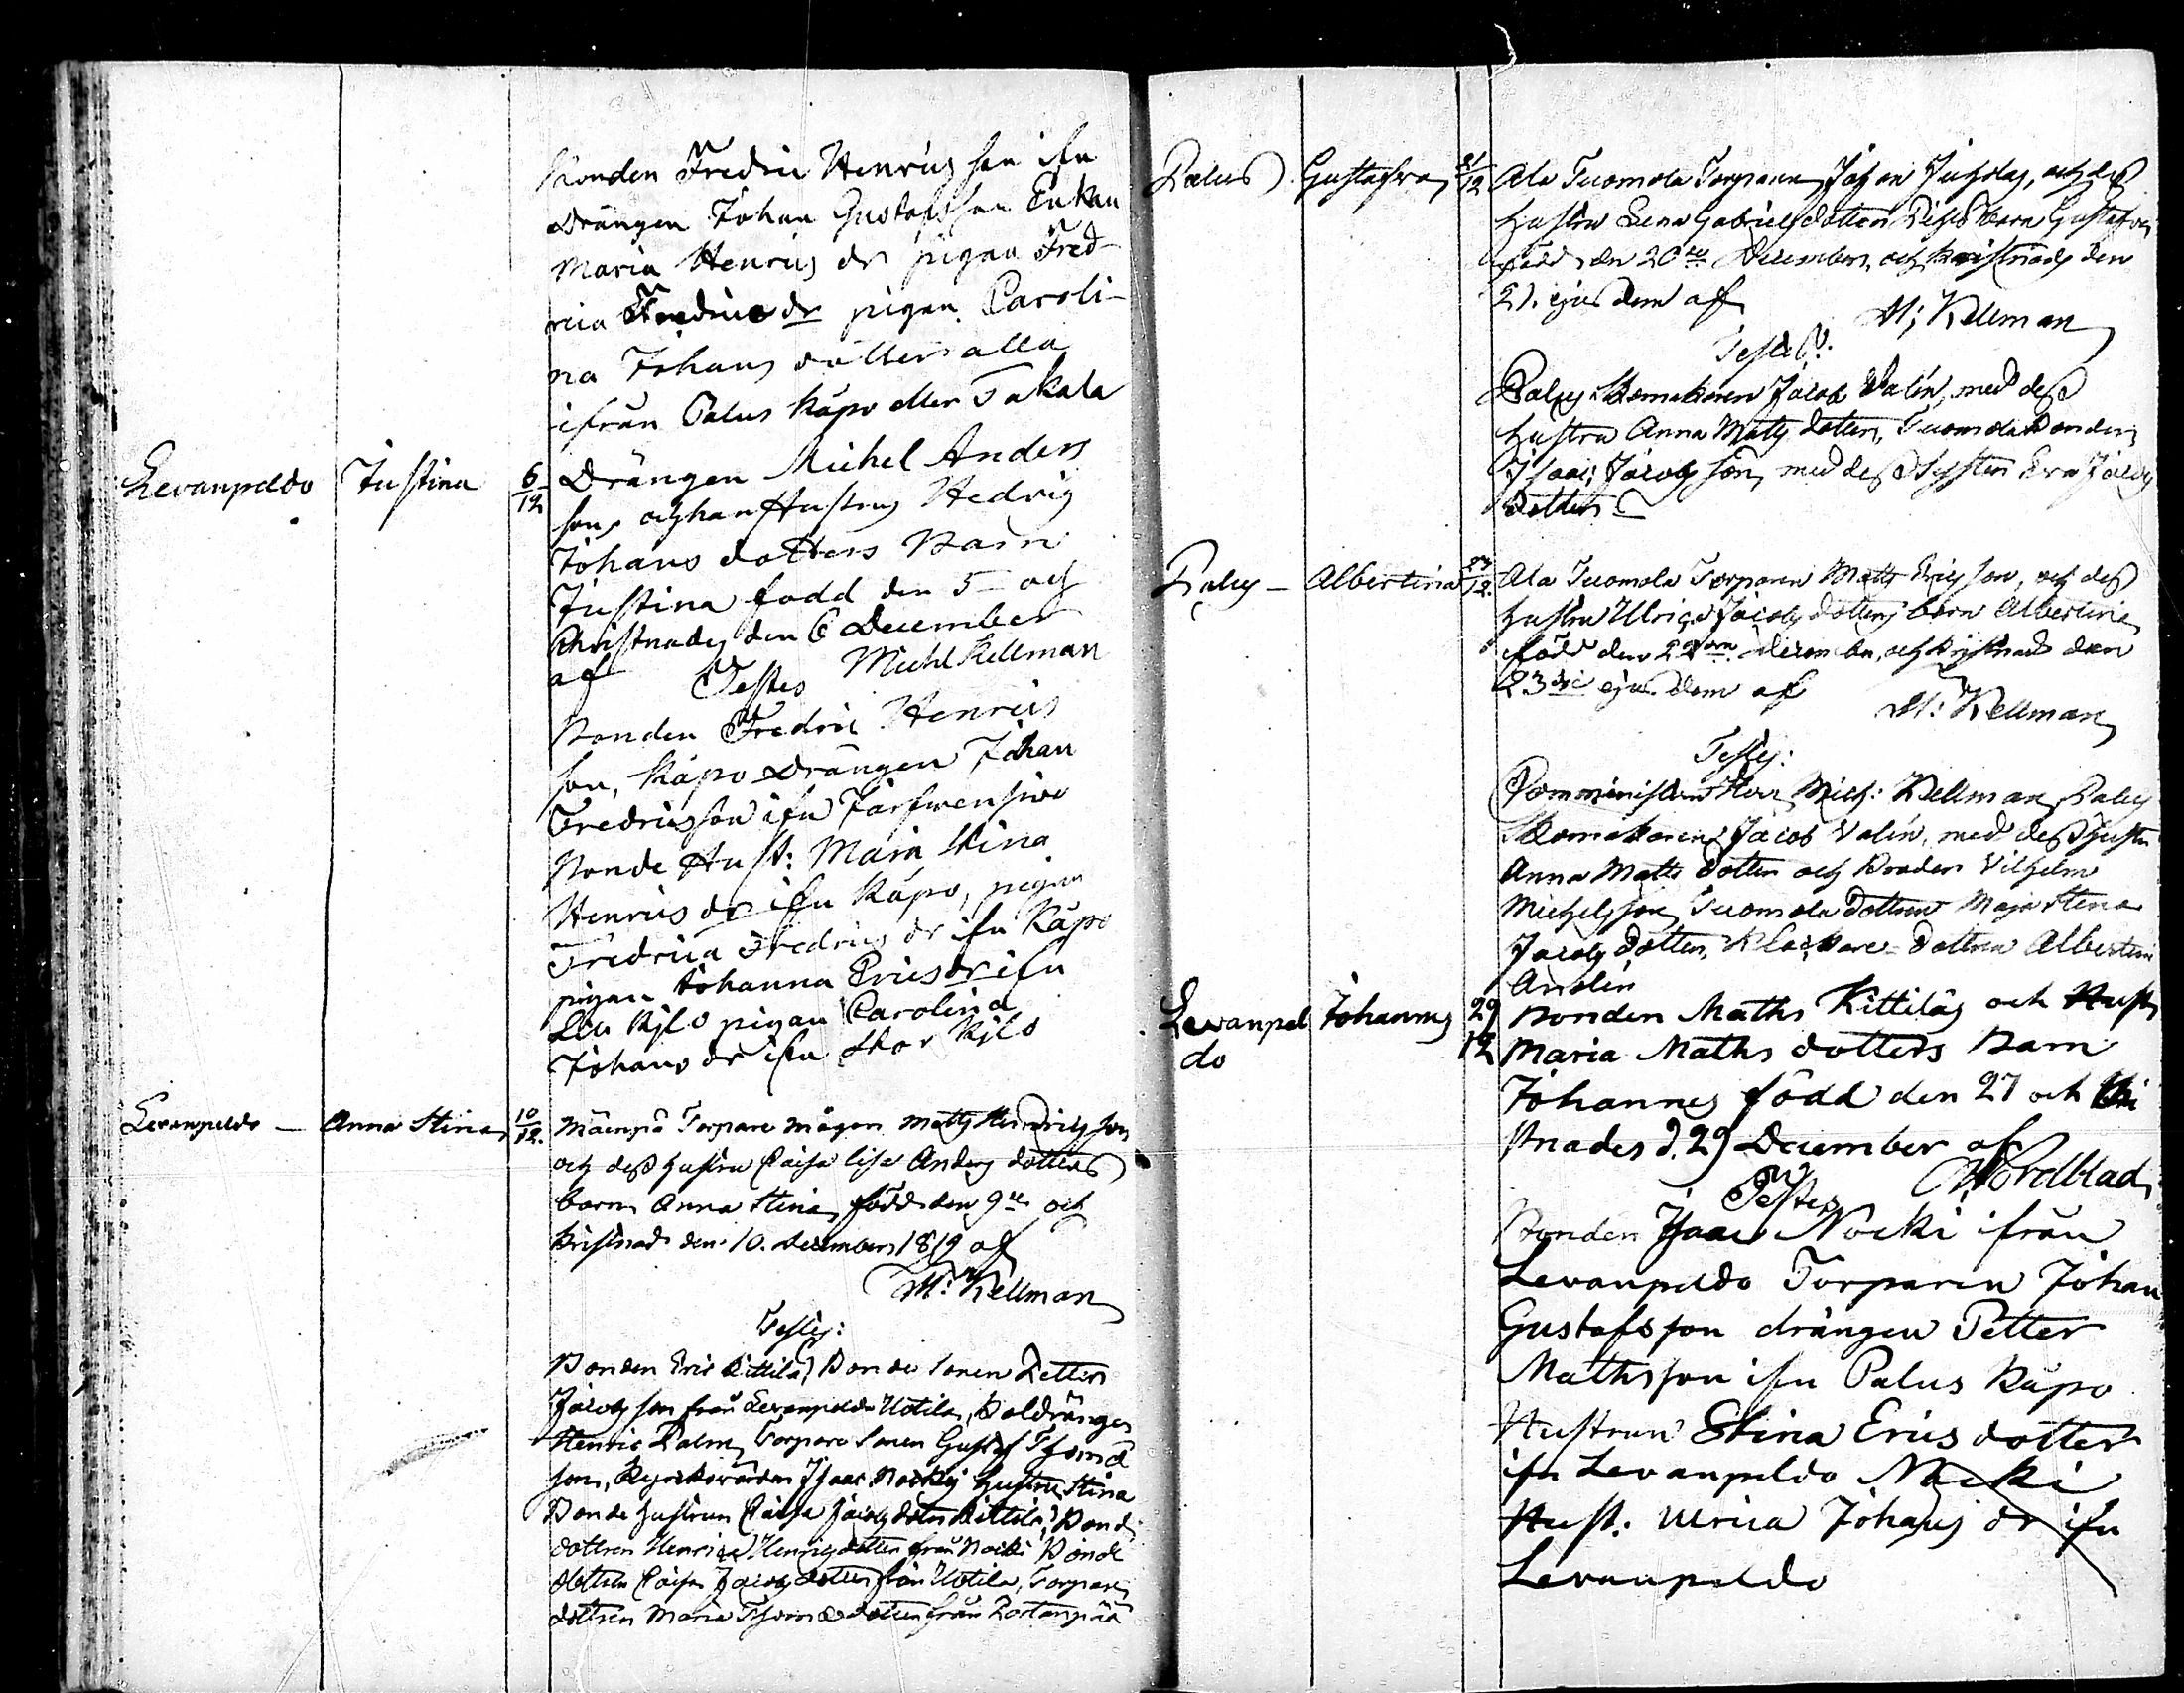 Bonden Fredric Henrics son ifrn
Drängen Johan Gustafsson Enkan
Maria Henrics dr pigan Fred-
rica Fredrics dr pigan Caroli-
na Johans dotter alla
ifrån Palus Käpo eller Takala
Levanpeldo Justina 6/12 Drängen Michel Anders
sons och han Hustrus Hedvig
Johans dotters Barn
Justina född den 5 och
Christnades den 6 December
af Michl Kellman
Testes
Bonden Fredric Henrics
son, Käpo Drängen Johan
Fredricsson ifrn
Bonde Hust: Maria Stina
Henrics dr ifrn Käpo, pigan
Fredrica Fredrics dr ifrn Käpo
pigan Johanna Erics dr ifrn
Kylö pigan Carolina
Johans dr ifrn Stor Kylö
Levanpeldo — Anna Stina 10/12. Mäenpä Torpare mågen Matts Hendrics son
och dess hustru Caisa Lisa Anders dotters
barn Anna Stina, född den 9de och
kristnad den 10. December 1819 af
M: Kellman
Testes:
Bonden Eric Kittilä, Bonde Sonen Petter
Jacobs son från Levanpeldo Uotila,
Henric Palm, Torpare Sonen Gustaf Thomæ
son, Kyrkovärden Isaac Nockis hustru Stina
Bonde hustrun Caisa Jacobs dotter Kittilä, Bonde
dottren Henrica Henrics dotter från Nocki Bonde
dottren Caisa Jacobs dotter från Uotila, Torpare
dottren Maria Thomæ dotter från
Palus Gustafva 21/12 Ala Tuomola Torparen Johan, och dess
hustru Lena Gabriels dotters barn Gustafva
född den 20de December, och kristnades den
21. ejusdem af M: Kellman
Testes:
Palus Skomakaren Jacob Valin, med dess
hustru Anna Matts dotter, Tuomola Bonden
Isaac Jacobs son, med dess Syster Eva Jacobs
dotter
Palus — Albertina 23/12. Ala Tuomola Torparen Matts Erics son, och dess
hustru Ulrica Jacobs dotters barn Albertina
född den 22 December, och kristnad den
23die ejusdem af
M: Kellman
Testes:
Comministern Herr Mich: Kellman, Palus
Skomakaren Jacob Valin, med dess hustru
Anna Matts dotter och Broder Vilhelm
Michels son, Tuomola dottren Maja Stina
Jacobs dotter, Klockare-dottren Albertina
Levanpel Johannes 29/12 Bonden Maths Kittiläs och Hust
do Maria Maths dotters Barn
Johannes född den 27 och Chri
stnades d. 29 December af
Nordblad
Testes
Bonden Isaac Nocki ifrån
Levanpeldo Torparen Johan
Gustafsson drängen Petter
Mathsson ifrn Palus Käpo
Hustrun Stina Erics dotter
ifrn Levanpeldo Nocki
Hust: Ulrica Johans dr ifrn
Levanpeldo